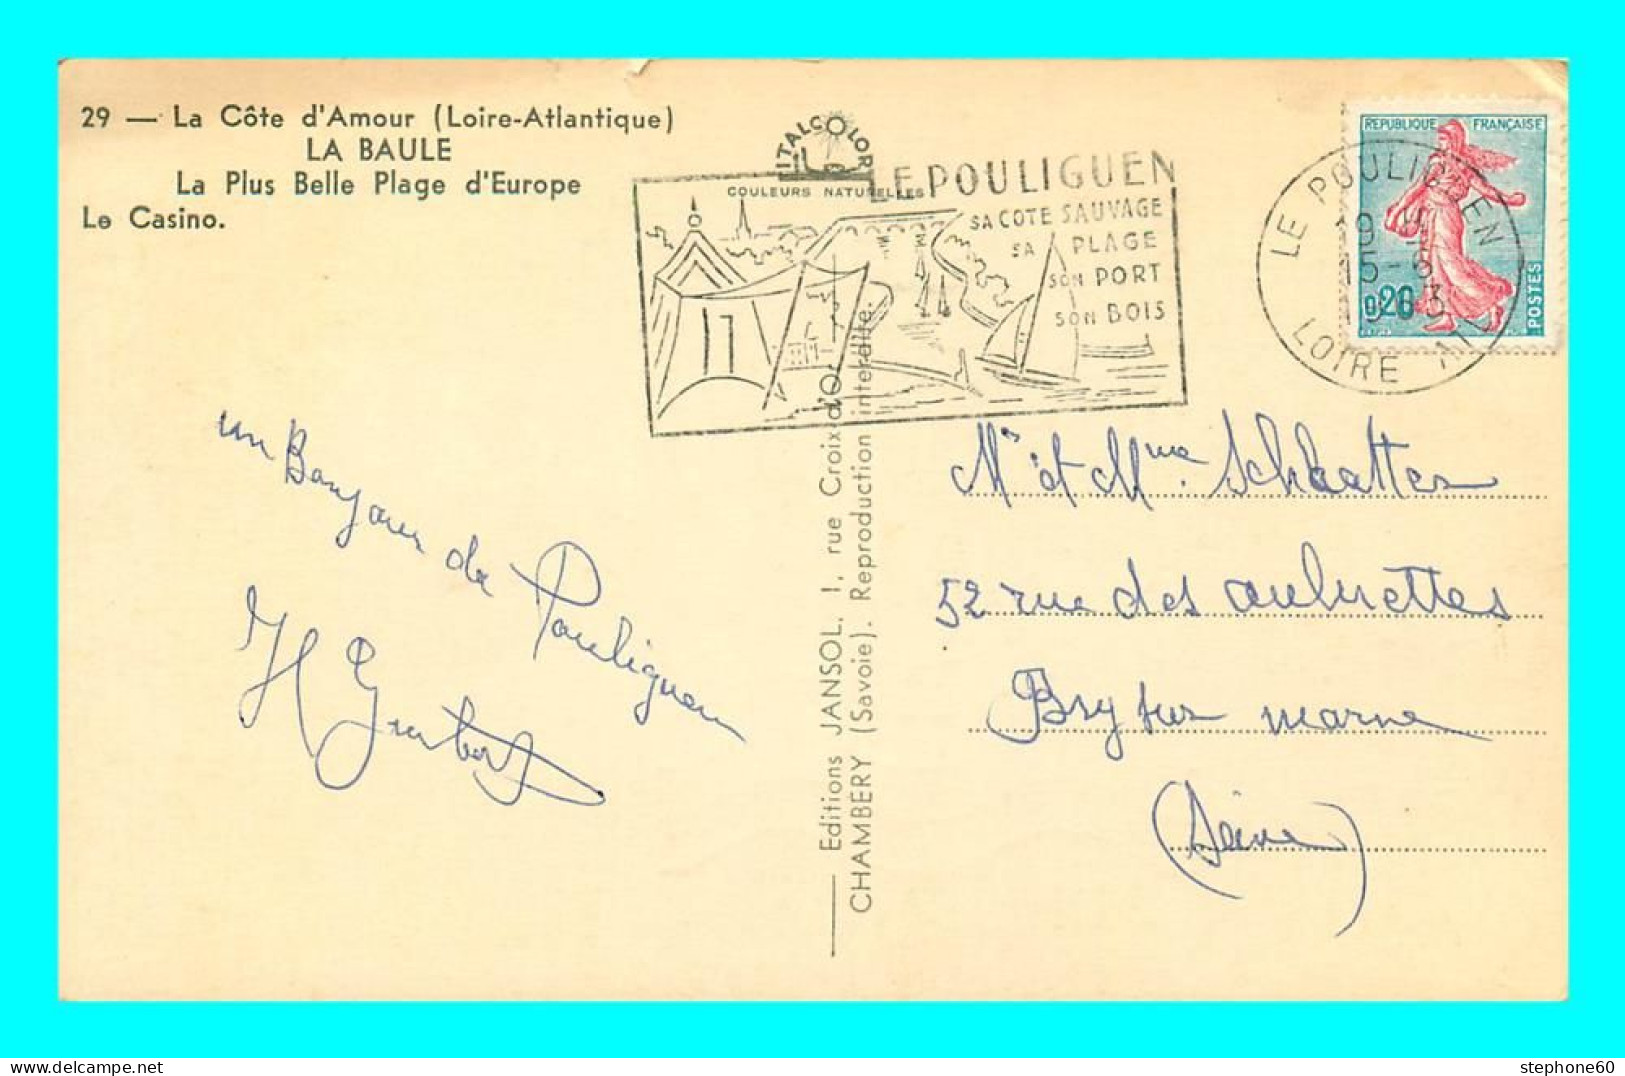 29 — La Côte d'Amour (Loire-Atlantique)
LA BAULE
La Plus Belle Plage d'Europe
Le Casino.
ITALCOLOR
COULEURS NATURELLES
LE POULIGUEN
SA COTE SAUVAGE
SA PLAGE
SON PORT
SON BOIS
REPUBLIQUE FRANÇAISE
0,20
POSTES
LE POULIGUEN
LOIRE
un Bonjour du
Pouliguen
Editions JANSOL, 1, rue Croix-d'Or
CHAMBERY (Savoie). Reproduction interdite.
Mr et Mme
52 rue des aubuettes
Bry sur marne
(Seine)
stephone60